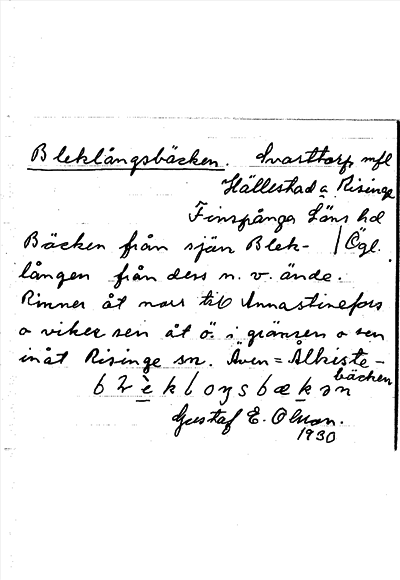 Bleklångsbäcken. Svarttorp mfl
Hällestad o Risinge
Finspånga Läns hd
Bäcken från sjön Blek- / Ögl.
lången från dess n. v. ände.
Rinner åt norr till Annastinefors
o viker sen åt ö. i gränsen o sen
inåt Risinge sn. Även = Ålkiste-
bäcken
Gustaf E. Olson.
1930